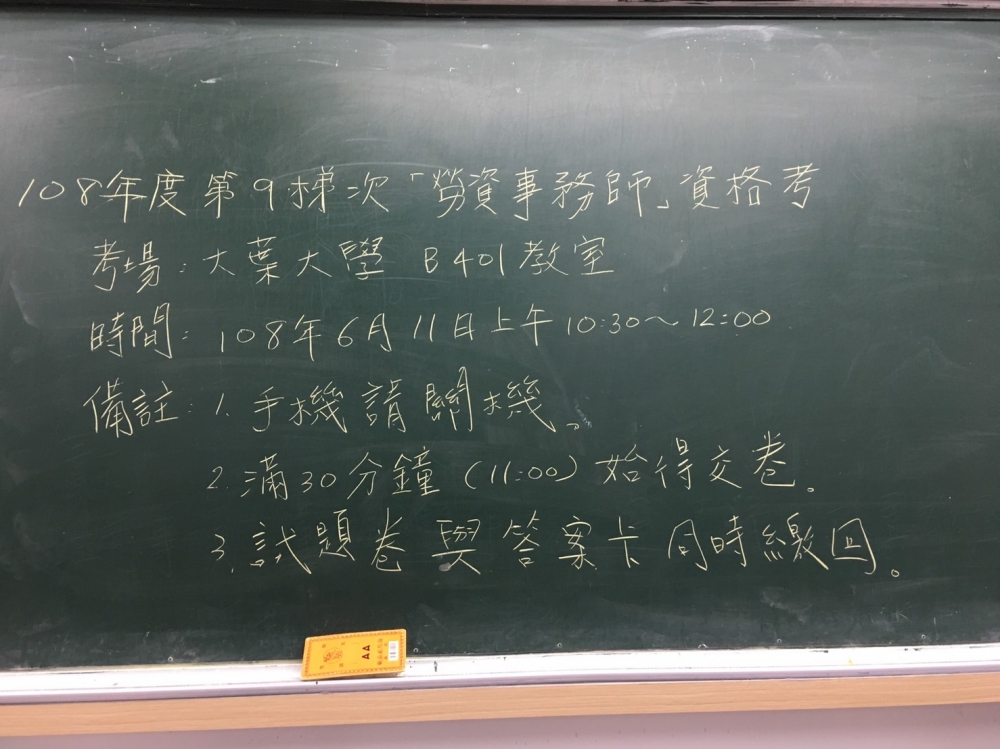 108年度第9梯次「勞資事務師」資格考
考場：大葉大學 B401教室
時間：108年6月11日上午10:30~12:00
備註：1.手機請關機。
2.滿30分鐘(11:00)始得交卷。
3.試題卷與答案卡同時繳回。
AA